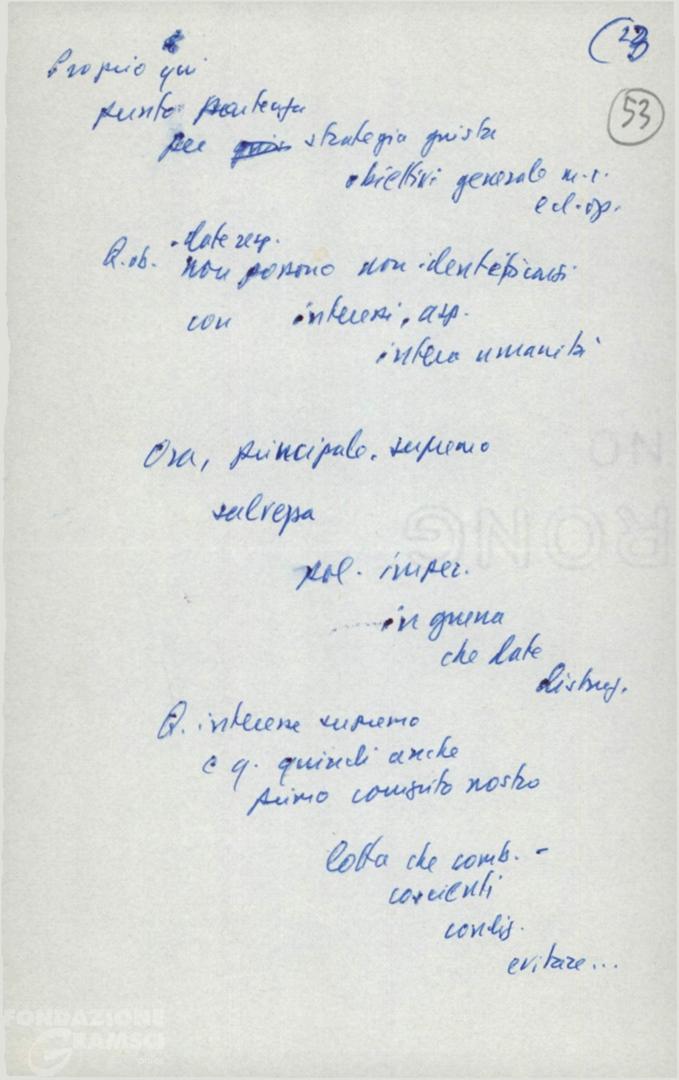 (23
53
Proprio qui
punto partenza
per strategia giusta
obiettivi generale m.r.
ed. op.
Q. ob. date resp.
non possono non identificarsi
con interessi, asp.
intera umanità
Ora, principale, supremo
salvezza
pol. imper.
in guerra
che date
distrug.
Q. interesse supremo
e q. quindi anche
primo compito nostro
lotta che comb. -
coscienti
condiz.
evitare...
FONDAZIONE
GRAMSCI